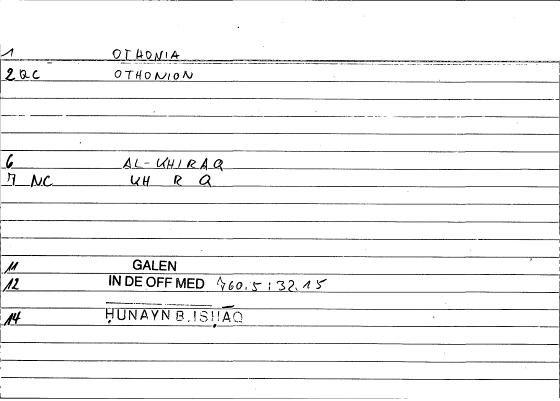 1 OTHONIA
2 QC OTHONION
6 AL-KHIRAQ
7 NC KH R Q
11 GALEN
12 IN DE OFF MED 760.5 : 32.15
14 ḤUNAYN B. ISḤĀQ